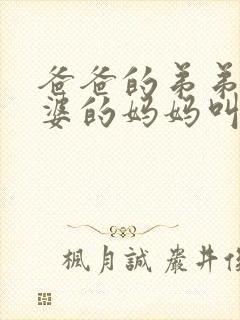 爸爸的弟弟
婆的妈妈叫
楓月誠 嚴井